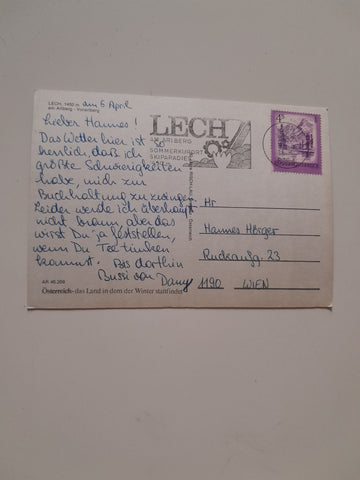 LECH, 1450 m am 6. April
am Arlberg - Vorarlberg
Lieber Hannes!
Das Wetter hier ist so
herrlich, daß ich
größte Schwierigkeiten
habe, mich zur
Buchhaltung zu zwingen.
Leider werde ich überhaupt
nicht braun, aber das
wirst Du ja feststellen,
wenn Du Tee trinken
kommst. Bis dorthin
Bussi von Dany
AR 46.209
Österreich - das Land in dem der Winter stattfindet
LECH
AM ARLBERG
SOMMERKURORT
SKIPARADIES
Hr
Hannes
23
1190 WIEN